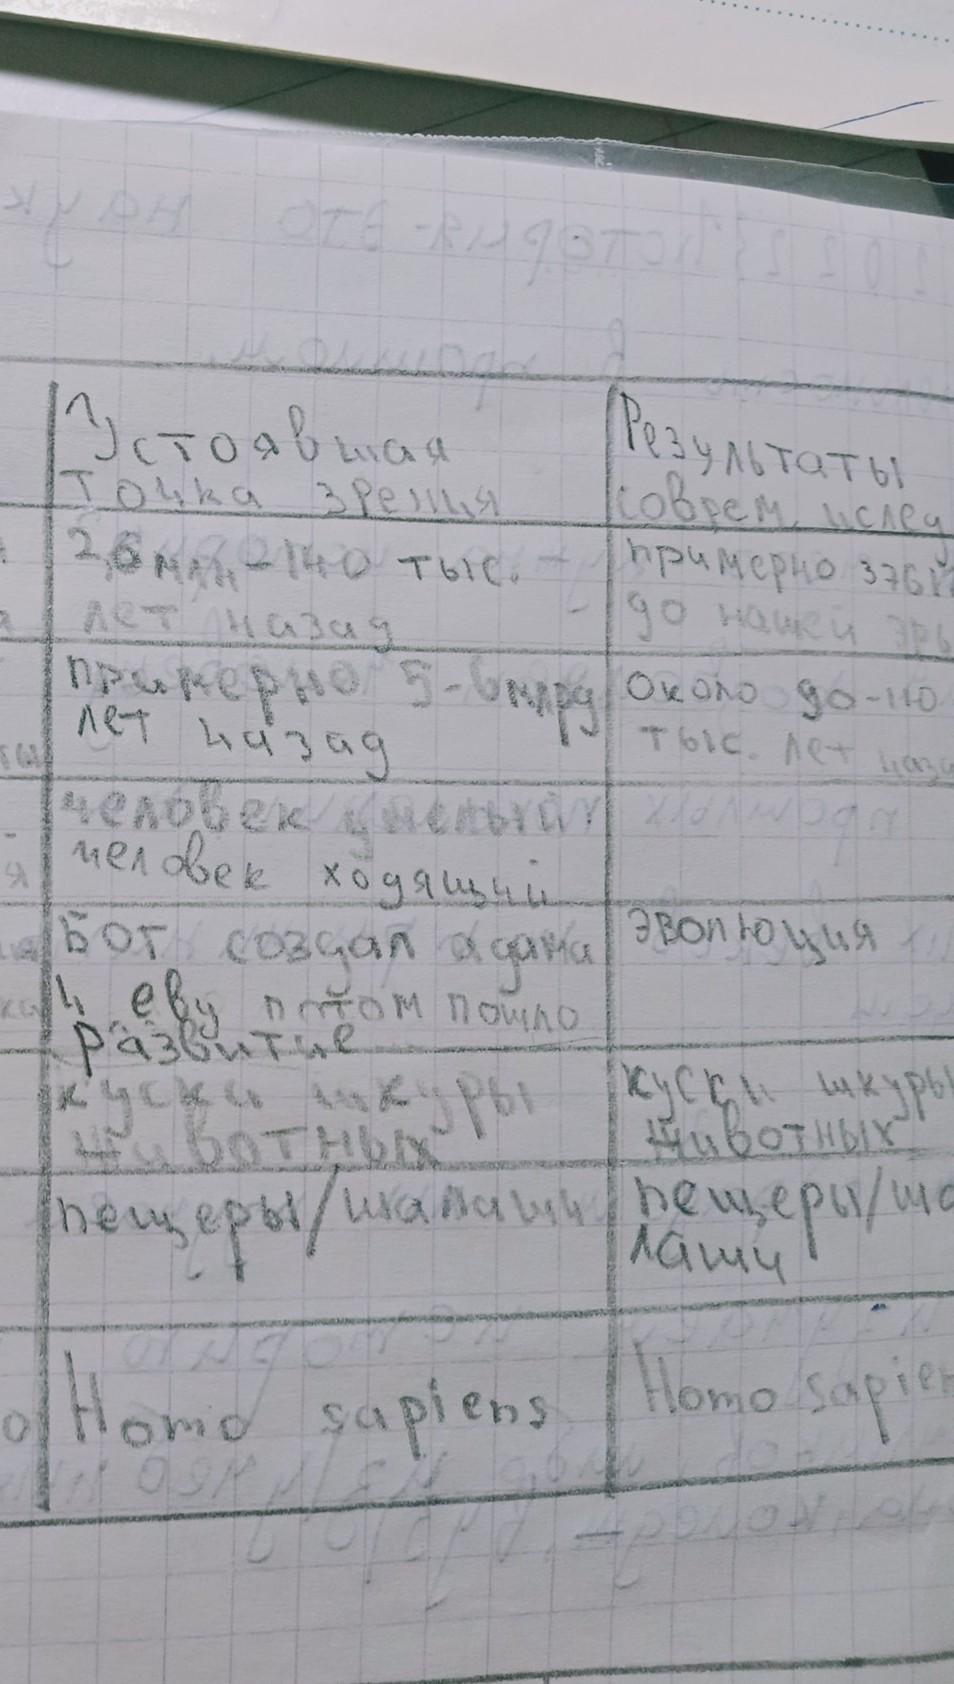 Устоявшая
точка зрения
Результаты
соврем. ислед
2,6 млн - 140 тыс.
лет назад
примерно 3761
до нашей эры
примерно 5-6 млрд
лет назад
около 90-110
тыс. лет наза
человек умелый
человек ходящий
Бог создал адама
и еву потом пошло
развитие
эволюция
куски шкуры
животных
куски шкуры
животных
пещеры/шалаши
пещеры/ша
лаши
Homo sapiens
Homo sapien